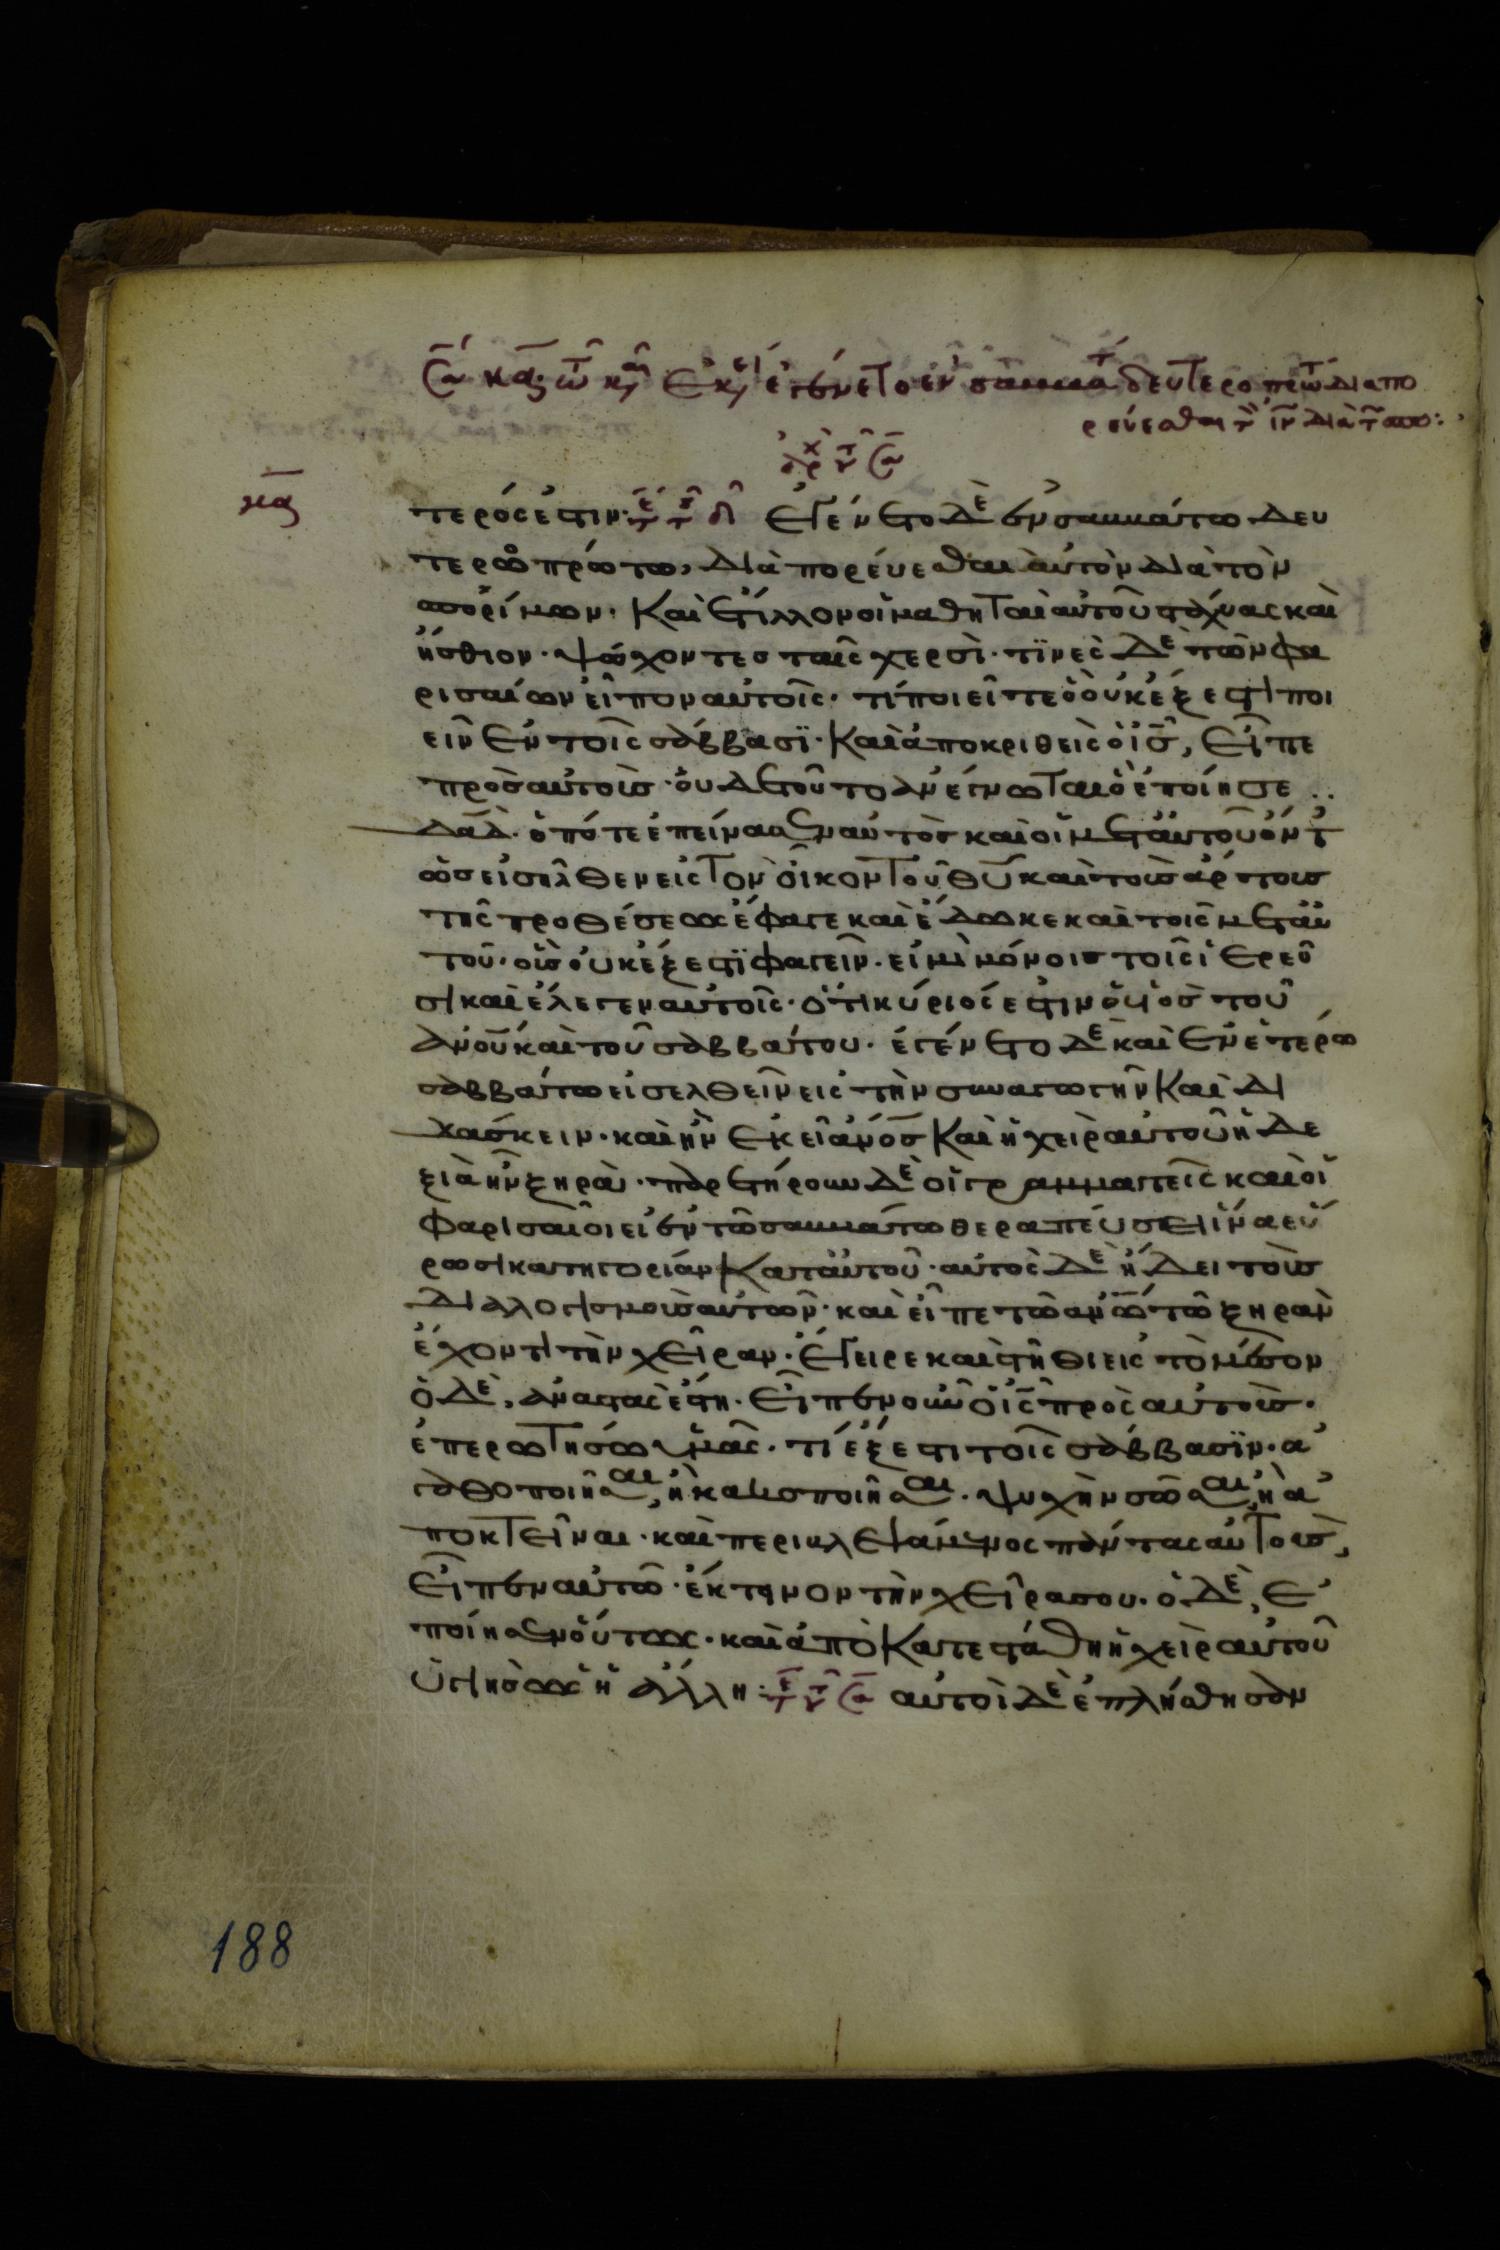 κα τῶ κῶ ἐκ ἐγένετο ἐν σάββα δευτεροπρώ διαπο
ρεύεσθαι τ ιν διὰ τ σπο:
ἀρχ τ
κα
τερός ἐστιν· τε τ Ἐγένετο δὲ ἐν σαββάτω δευ
τεροπρώτω, διαπορεύεσθαι αὐτὸν διὰ τὸν
σπορίμων· Καὶ ἔτιλλον οἱ μαθηταὶ αὐτοῦ στάχυας καὶ
ἤσθιον· ψώχοντες ταῖς χερσὶ· τϊνὲς δὲ τῶν φα
ρισαίων εἶπον αὐτοῖς· τί ποιεῖτε ὃ οὐκ ἔξεστι ποι
εῖν ἐν τοῖς σάββασϊ· Καὶ ἀποκριθεὶς ὁ ις, εἶπε
πρὸς αὐτοὺς· οὐδὲ τοῦτο ἀνέγνωται ὃ ἐποίησε
δαδ· ὁπότε ἐπείνασεν αὐτὸς καὶ οἱ μετ' αὐτοῦ ὄντ
ὡς εἰσῆλθεν εἰς τὸν οἶκον τοῦ θυ καὶ τοὺς ἄρτους
τῆς προθέσεως ἔφαγε καὶ ἔδωκε καὶ τοῖς μετ' αὐ
τοῦ· οὓς οὐκ ἔξεστϊ φαγεῖν· εἰ μὴ μόνοις τοῖς ἱερεῦ
σι καὶ ἔλεγεν αὐτοῖς· ὅτι κύριός ἐστιν ὁ υἱὸς τοῦ
ἀνου καὶ τοῦ σαββάτου· ἐγένετο δὲ καὶ ἐν ἑτέρω
σαββάτω εἰσελθεῖν εἰς τὴν συναγωγὴν Καὶ δι
δάσκειν· καὶ ἦν ἐκεῖ ανος Καὶ ἡ χεὶρ αὐτοῦ ἡ δε
ξιὰ ἦν ξηρὰ· παρετήρουν δὲ οἱ γραμματεῖς καὶ οἱ
φαρισαῖοι εἰ ἐν τῶ σαββάτω θεραπεύσει ἵνα εὕ
ρωσι κατηγορίαν Κατ' αὐτοῦ· αὐτὸς δὲ ἤδει τοὺς
διαλογισμοὺς αὐτῶν· καὶ εἶπε τῶ ανω τῶ ξηρὰν
ἔχοντι τὴν χεῖραν· Ἔγειρε καὶ στῆθι εἰς τὸ μέσον
ὁ δὲ, ἀναστὰς ἔστη· Εἶπεν οὖν ὁ ις πρὸς αὐτοὺς·
ἐπερωτήσω ὑμᾶς· τί ἔξεστι τοῖς σάββασϊν· ἀ
γαθοποιῆσαι, ἢ κακοποιῆσαι· ψυχὴν σῶσαι, ἢ ἀ
ποκτεῖναι· καὶ περιβλεψάμενος πάντας αὐτοὺς,
Εἶπεν αὐτῶ· ἔκτεινον τὴν χεῖρα σου· ὁ δὲ, ἐ
ποίησεν οὕτως· καὶ ἀποκατεστάθη ἡ χεὶρ αὐτοῦ
ὑγιὴς ὡς ἡ ἄλλη: αὐτοὶ δὲ ἐπλήσθησαν
188